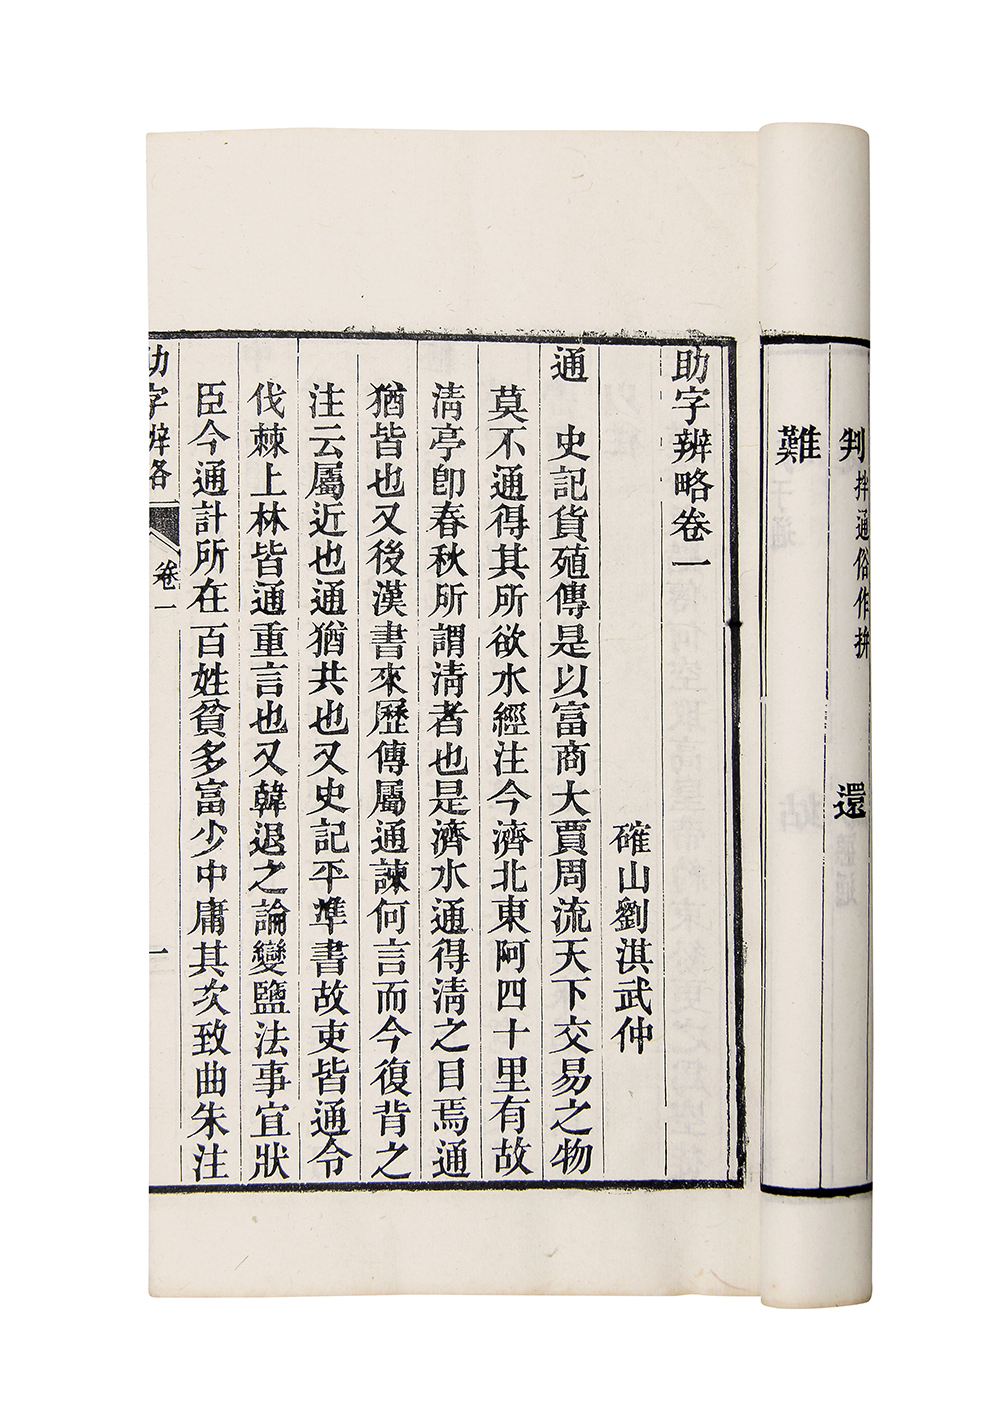 判 拌通俗作拚 還
難
助字辨略卷一
確山劉淇武仲
通
史記貨殖傳是以富商大賈周流天下交易之物
莫不通得其所欲水經注今濟北東阿四十里有故
淸亭卽春秋所謂淸者也是濟水通得淸之目焉通
猶皆也又後漢書來歷傳屬通諫何言而今復背之
注云屬近也通猶共也又史記平準書故吏皆通令
伐棘上林皆通重言也又韓退之論變鹽法事宜狀
臣今通計所在百姓貧多富少中庸其次致曲朱注
助字辨略 卷一 一